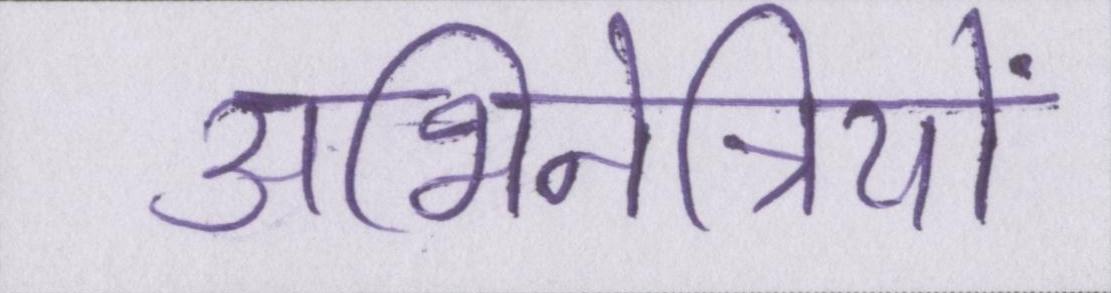 अभिनेत्रियों